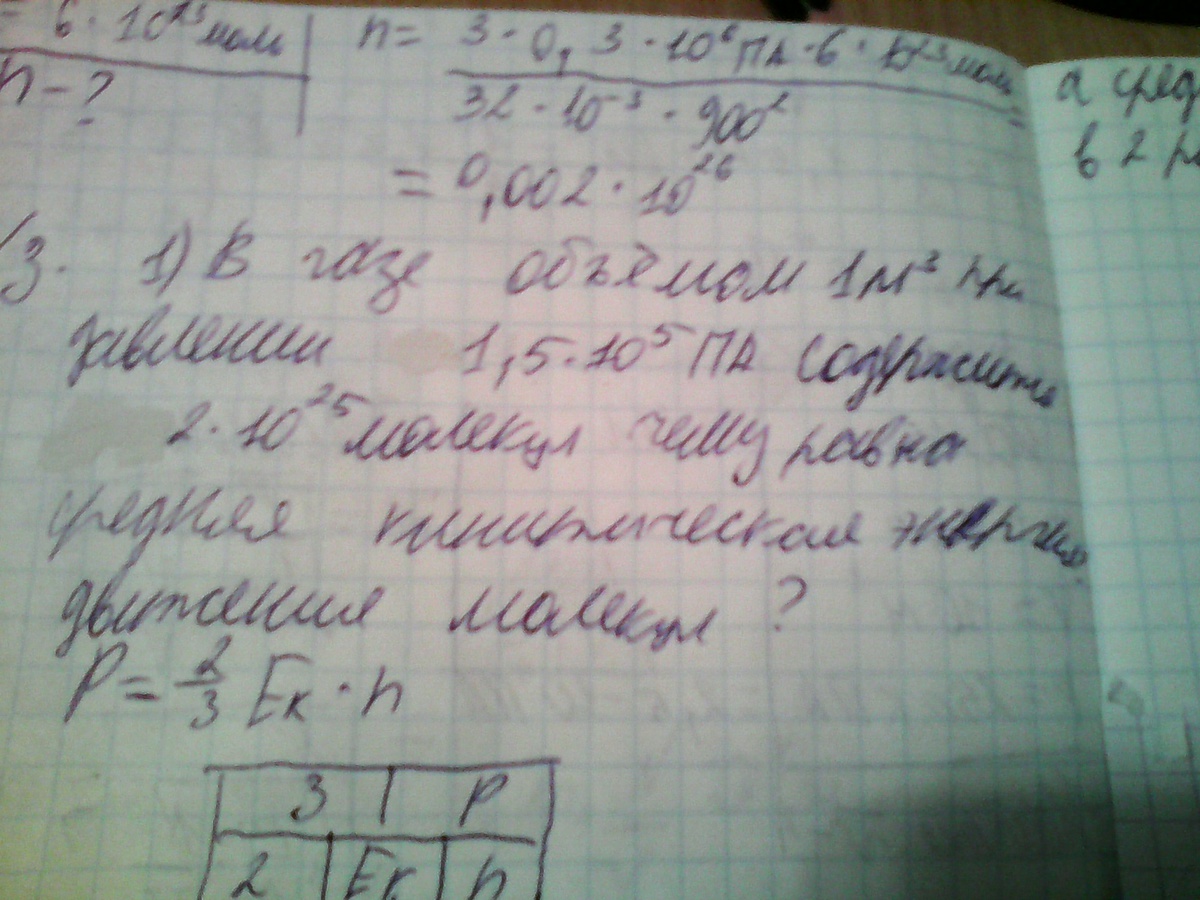 = 6 · 10²³ мол
n - ?
n = 3 · 0,3 · 10⁶ ПА · 6 · 10²³ мол =
32 · 10⁻³ · 900²
= 0,002 · 10²⁶
а сред
в 2 ра
3. 1) В газе объёмом 1м³ при
давлении 1,5·10⁵ ПА содержится
2·10²⁵ молекул чему равна
средняя кинитическая энергия
движения молекул ?
P = 2/3 Eк · n
3 | P
2 | Eк | n